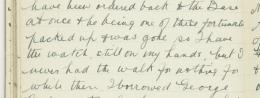 have been ordered back to the Base
at once & he being one of these fortunate
packed up & was gone so I have
the watch still on my hands, but I
never had the walk for nothing for
while there I borrowed George